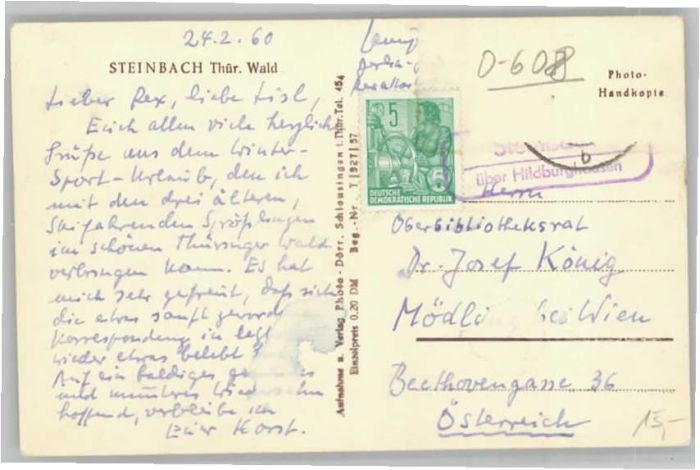 24.2.60
STEINBACH Thür. Wald
Lieber Rex, liebe Lisl,
Euch allen viele herzliche
Grüße aus dem Winter-
Sport-Urlaub, den ich
mit den drei älteren,
skifahrenden Sprößlingen
im schönen Thüringer Wald
verbringen kann. Es hat
mich sehr gefreut, daß sich
die etwas sanft
Korrespondenz in letzt
wieder etwas belebt!
Auf ein baldiges
und munteres Wiedersehn
hoffend, verbleibe ich
Euer Horst.
Aufnahme u. Verlag Photo-Dörr, Schleusingen i. Thür. Tel. 454
Einzelpreis 0.20 DM Reg.-Nr. T/927/57
0-608
Photo-
Handkopie
5
DEUTSCHE
DEMOKRATISCHE REPUBLIK
über Hildburghausen
Herrn
Oberbibliotheksrat
Dr. Josef König
Mödling bei Wien
Beethovengasse 36
Österreich
15,-